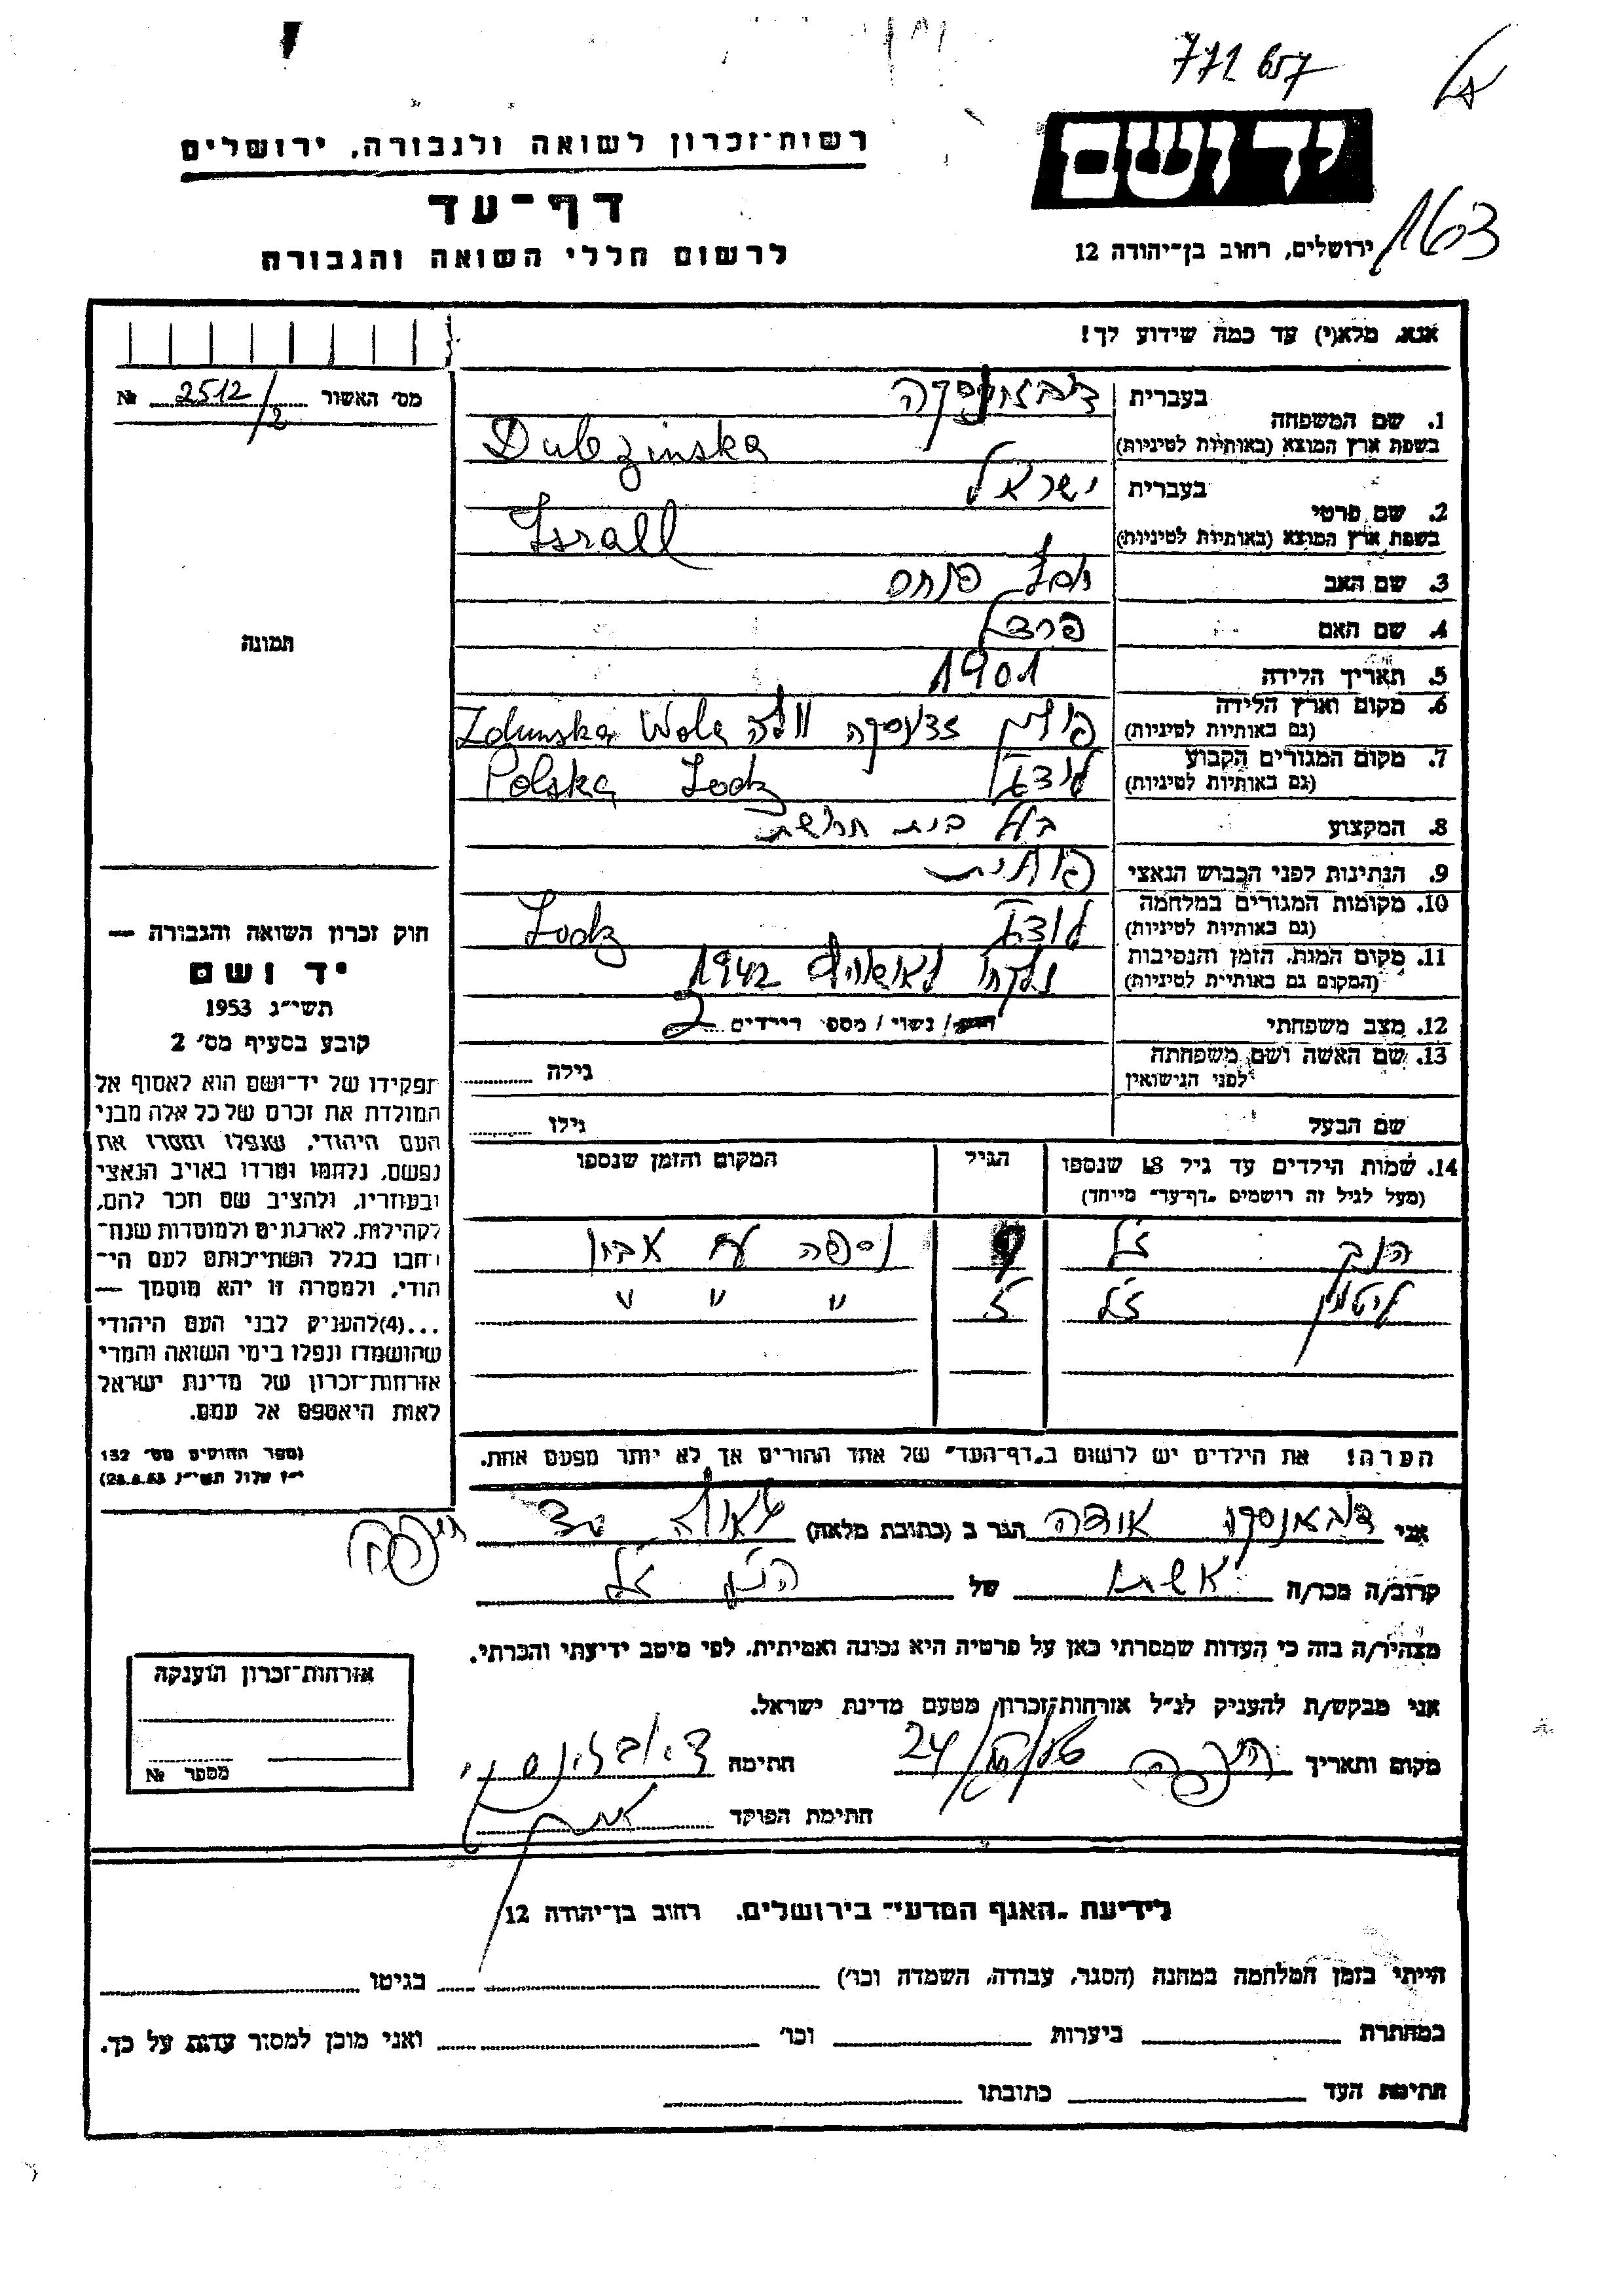 772 657
יד ושם
רשות־זכרון לשואה ולגבורה, ירושלים
דף־עד
לרשום חללי השואה והגבורה
ירושלים, רחוב בן־יהודה 12
אנא, מלא(י) עד כמה שידוע לך!
מס׳ האשור 2512/2 №
1. שם המשפחה
בעברית
בשפת ארץ המוצא (באותיות לטיניות) Dubezinska
2. שם פרטי
בעברית ישראל
בשפת ארץ המוצא (באותיות לטיניות) Israll
3. שם האב פנחס
4. שם האם
5. תאריך הלידה 1901
6. מקום וארץ הלידה
(גם באותיות לטיניות) פולין זדונסקה וולה Zdunska Wola
7. מקום המגורים הקבוע
(גם באותיות לטיניות) לודז׳ Lodz Polska
8. המקצוע בעל בית חרושת
9. הנתינות לפני הכבוש הנאצי פולנית
10. מקומות המגורים במלחמה
(גם באותיות לטיניות) לודז׳ Lodz
11. מקום המות, הזמן והנסיבות
(המקום גם באותיות לטיניות) 1942
12. מצב משפחתי רווק / נשוי / מספר הילדים 2
13. שם האשה ושם משפחתה
לפני הנישואין גילה
שם הבעל גילו
14. שמות הילדים עד גיל 18 שנספו
(מעל לגיל זה רושמים „דף־עד״ מיוחד)
הגיל
המקום והזמן שנספו
ז״ל 9 נספה עם אביו
ז״ל 〃 〃 〃
הערה: את הילדים יש לרשום ב„דף־העד״ של אחד ההורים אך לא יותר מפעם אחת.
תמונה
חוק זכרון השואה והגבורה —
יד ושם
תשי״ג 1953
קובע בסעיף מס׳ 2
תפקידו של יד־ושם הוא לאסוף אל
המולדת את זכרם של כל אלה מבני
העם היהודי, שנפלו ומסרו את
נפשם, נלחמו ומרדו באויב הנאצי
ובעוזריו, ולהציב שם וזכר להם,
לקהילות, לארגונים ולמוסדות שנח־
רבו בגלל השתייכותם לעם היה־
הודי, ולמטרה זו יהא מוסמך —
...(4)להעניק לבני העם היהודי
שהושמדו ונפלו בימי השואה והמרי
אזרחות־זכרון של מדינת ישראל
לאות היאספם אל עמם.
(ספר החוקים מס׳ 132
י״ז אלול תשי״ג 28.8.53)
אני הגר ב (כתובת מלאה) חיפה
קרוב/ה מכר/ה אשתו של הנ״ל ז״ל
מצהיר/ה בזה כי העדות שמסרתי כאן על פרטיה היא נכונה ואמיתית, לפי מיטב ידיעתי והכרתי.
אני מבקש/ת להעניק לנ״ל אזרחות־זכרון מטעם מדינת ישראל.
מקום ותאריך חיפה 24 חתימה
חתימת הפוקד
אזרחות־זכרון הוענקה
מספר №
לידיעת „האגף המדעי״ בירושלים, רחוב בן־יהודה 12
הייתי בזמן המלחמה במחנה (הסגר, עבודה, השמדה וכו׳) בגיטו
במחתרת ביערות וכו׳ ואני מוכן למסור עדות על כך.
חתימת העד כתובתו